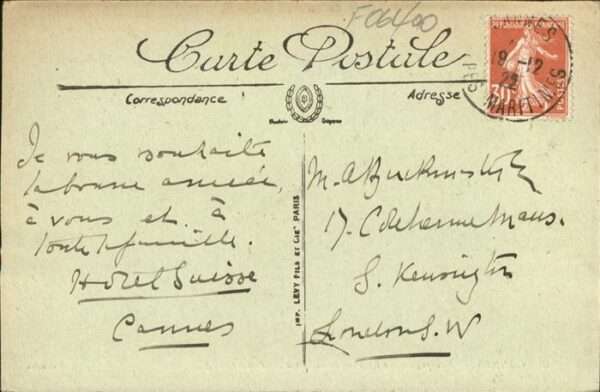 F06400
Carte Postale
Correspondance
Adresse
CANNES
19-12
22
ALPES MARITIMES
30
Je vous souhaite
la bonne année,
à vous et à
toute la famille.
Hotel Suisse
Cannes
IMP. LEVY FILS ET CIE PARIS
M. A Buckmaster
17. Mans.
S. Kensington
London S.W